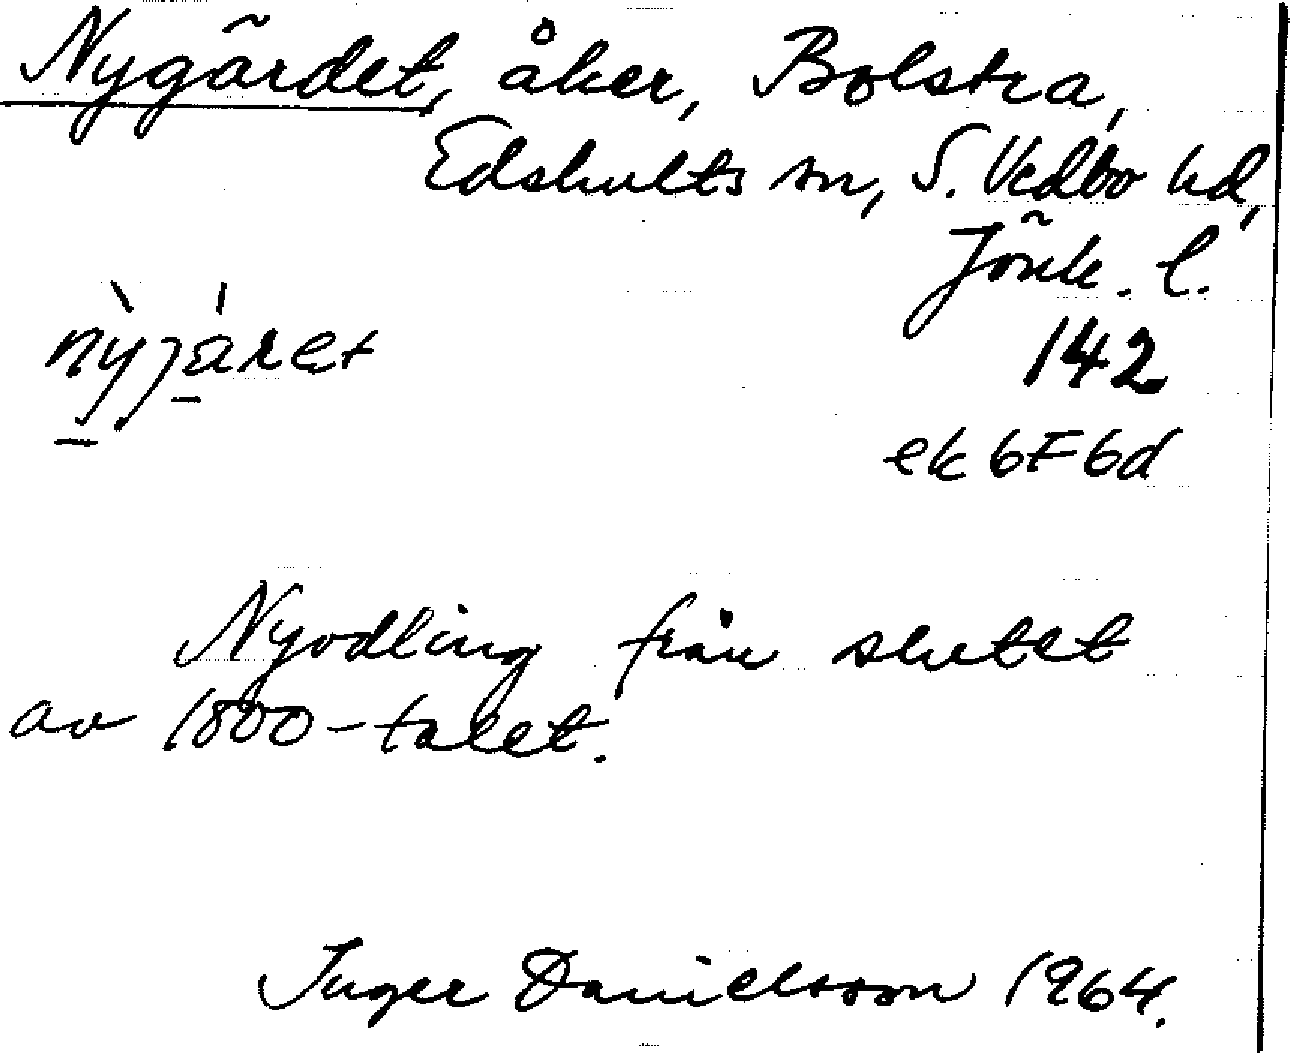 Nygärdet, åker, Bolstra,
Edshults sn, S. Vedbo hd,
Jönk. l.
nỳjáret
142
ek 6F6d
Nyodling från slutet
av 1800-talet.
Inger Danielsson 1964.